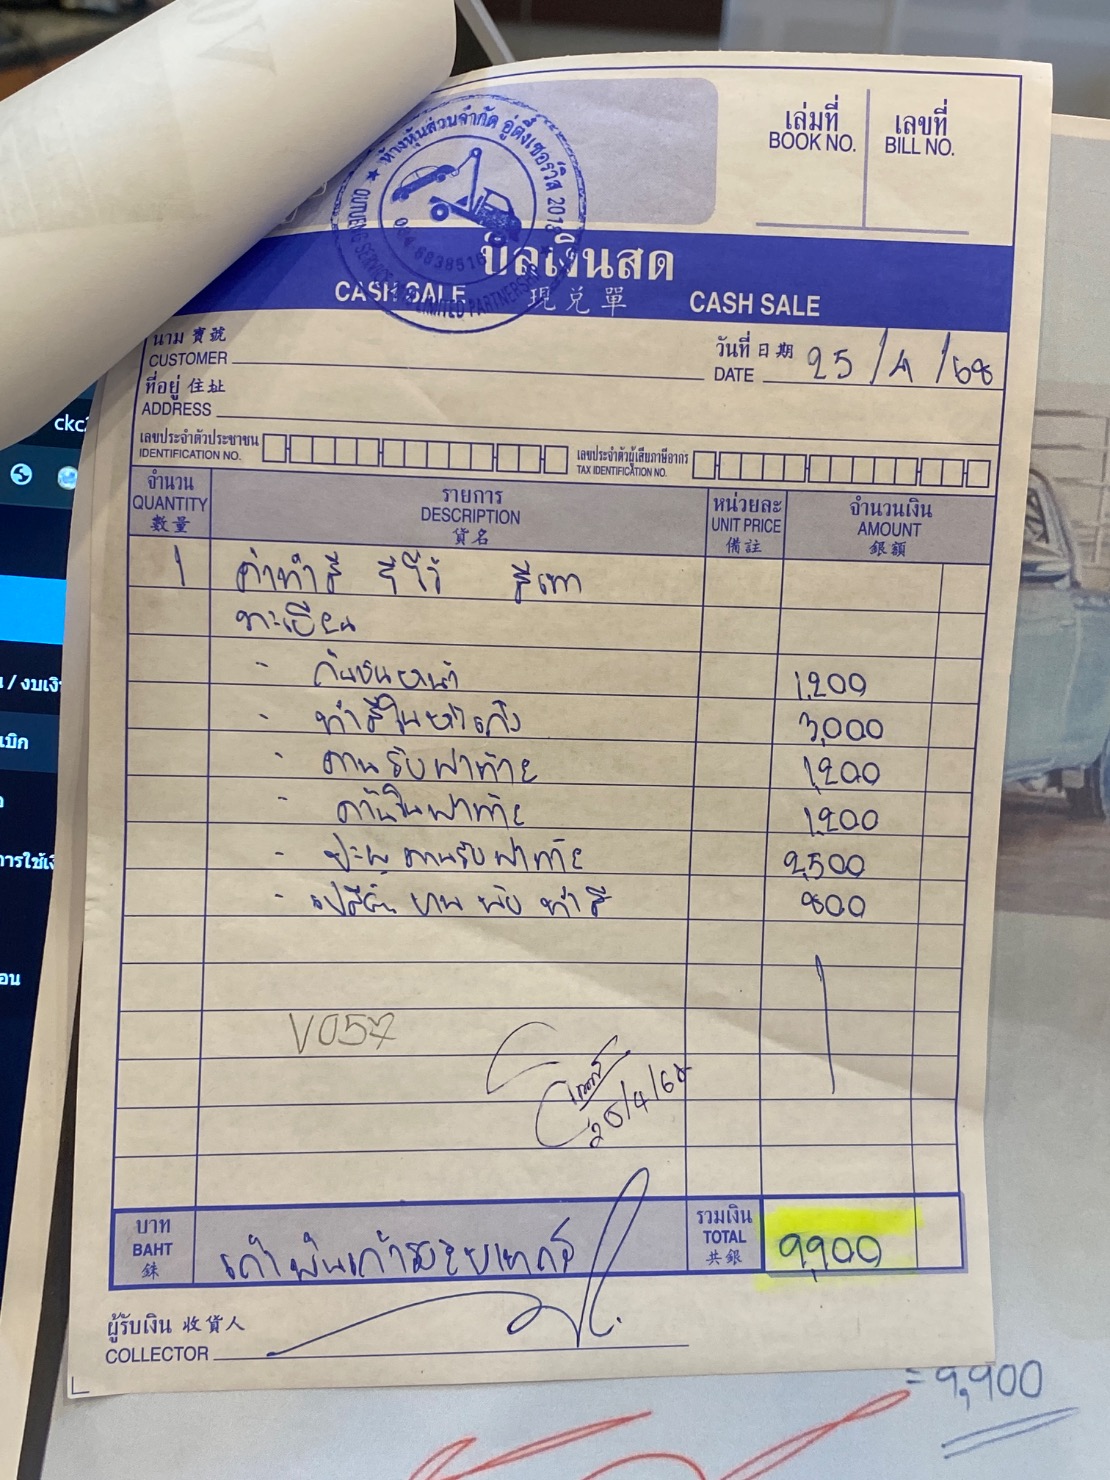 ห้างหุ้นส่วนจำกัด อู่ตึ๋งเซอร์วิส 2018
OUTUENG SERVICE LIMITED PARTNERSHIP
เล่มที่
BOOK NO.
เลขที่
BILL NO.
บิลเงินสด
CASH SALE 現兌單 CASH SALE
นาม 寶號
CUSTOMER
วันที่ 日期
DATE 25/4/68
ที่อยู่ 住址
ADDRESS
เลขประจำตัวประชาชน
IDENTIFICATION NO.
เลขประจำตัวผู้เสียภาษีอากร
TAX IDENTIFICATION NO.
จำนวน
QUANTITY
數量
รายการ
DESCRIPTION
貨名
หน่วยละ
UNIT PRICE
備註
จำนวนเงิน
AMOUNT
銀額
1 ค่าทำสี รีโว้ สีเทา
ทะเบียน
- กันชนหน้า 1,200
- ทำสีในหัวเก๋ง 3,000
- ฝาท้าย 1,200
- ฝาท้าย 1,200
- ฝาท้าย 2,500
- ทำสี 800
V057
25/4/68
บาท
BAHT
銖
เก้าพันเก้าร้อยบาทถ้วน
รวมเงิน
TOTAL
共銀
9,900
ผู้รับเงิน 收貨人
COLLECTOR
= 9,900
ckc
/ งบเงิ
เบิก
การใช้เงิ
อน